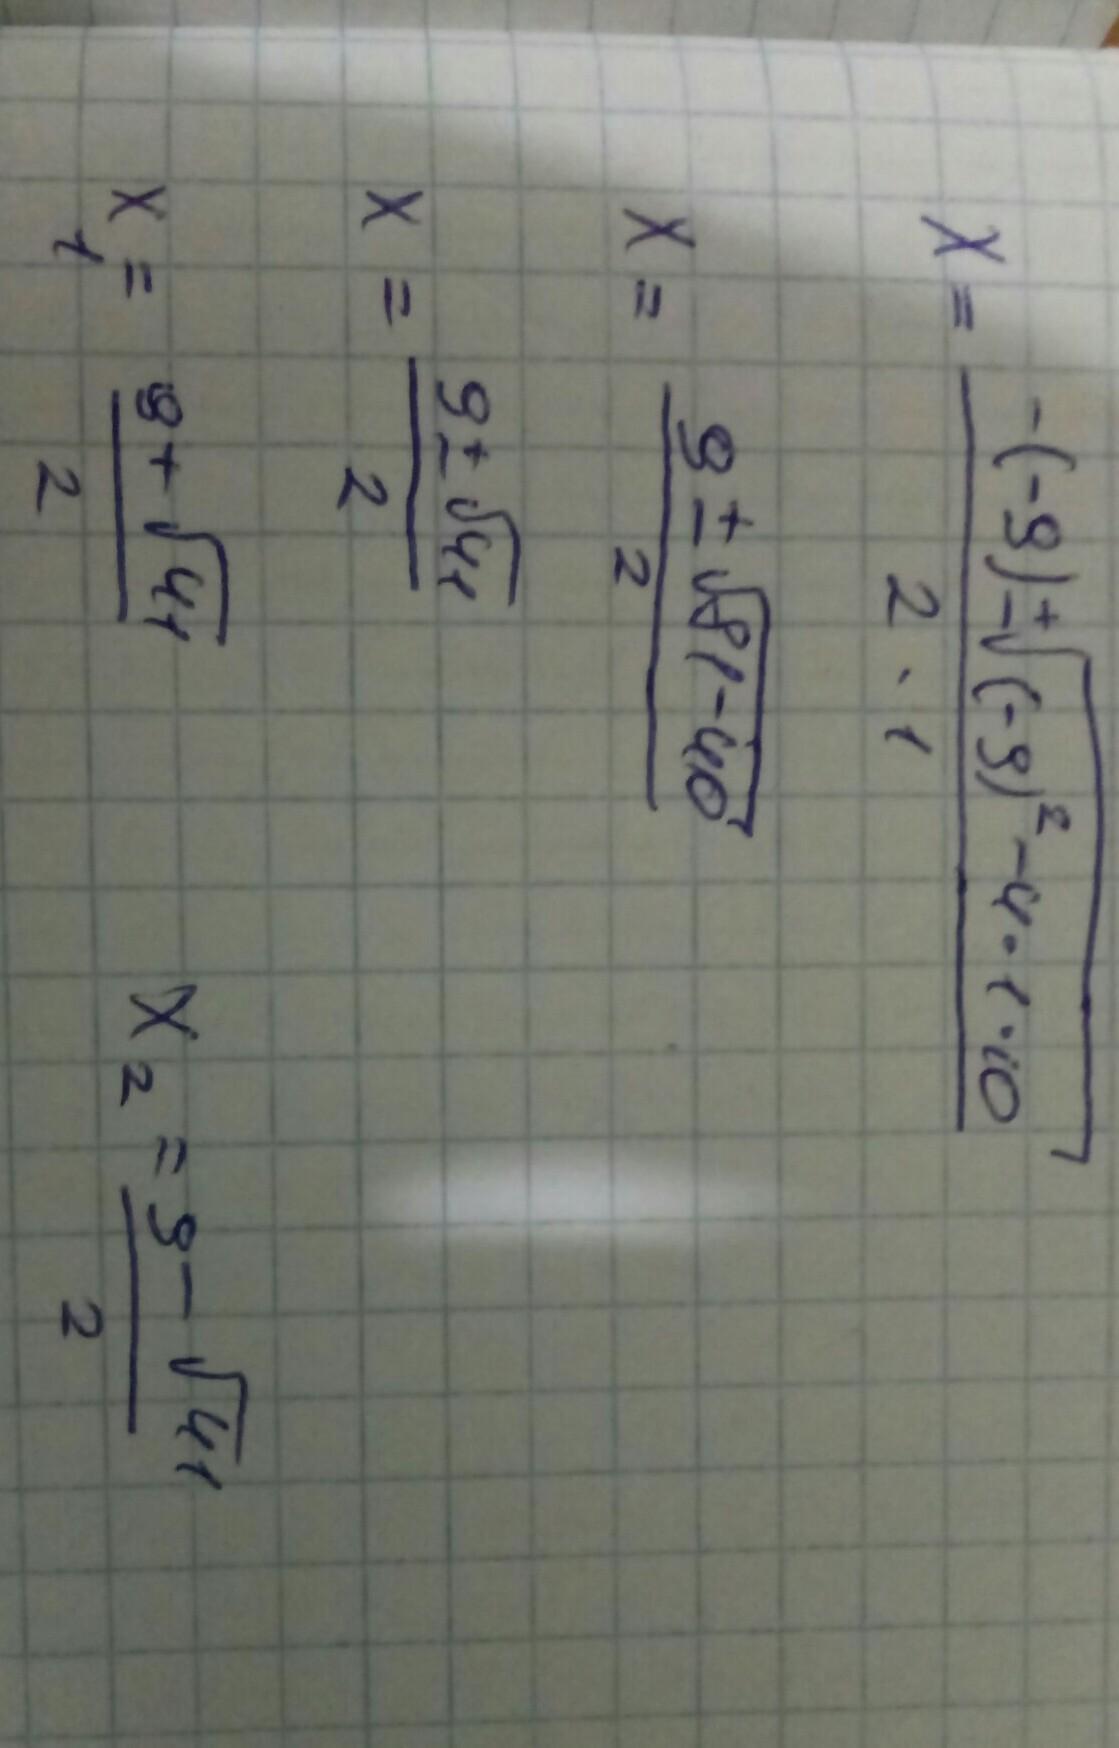 x = (-(-9) ± √((-9)² - 4 · 1 · 10)) / (2 · 1)
x = (9 ± √(81 - 40)) / 2
x = (9 ± √41) / 2
x₁ = (9 + √41) / 2    x₂ = (9 - √41) / 2